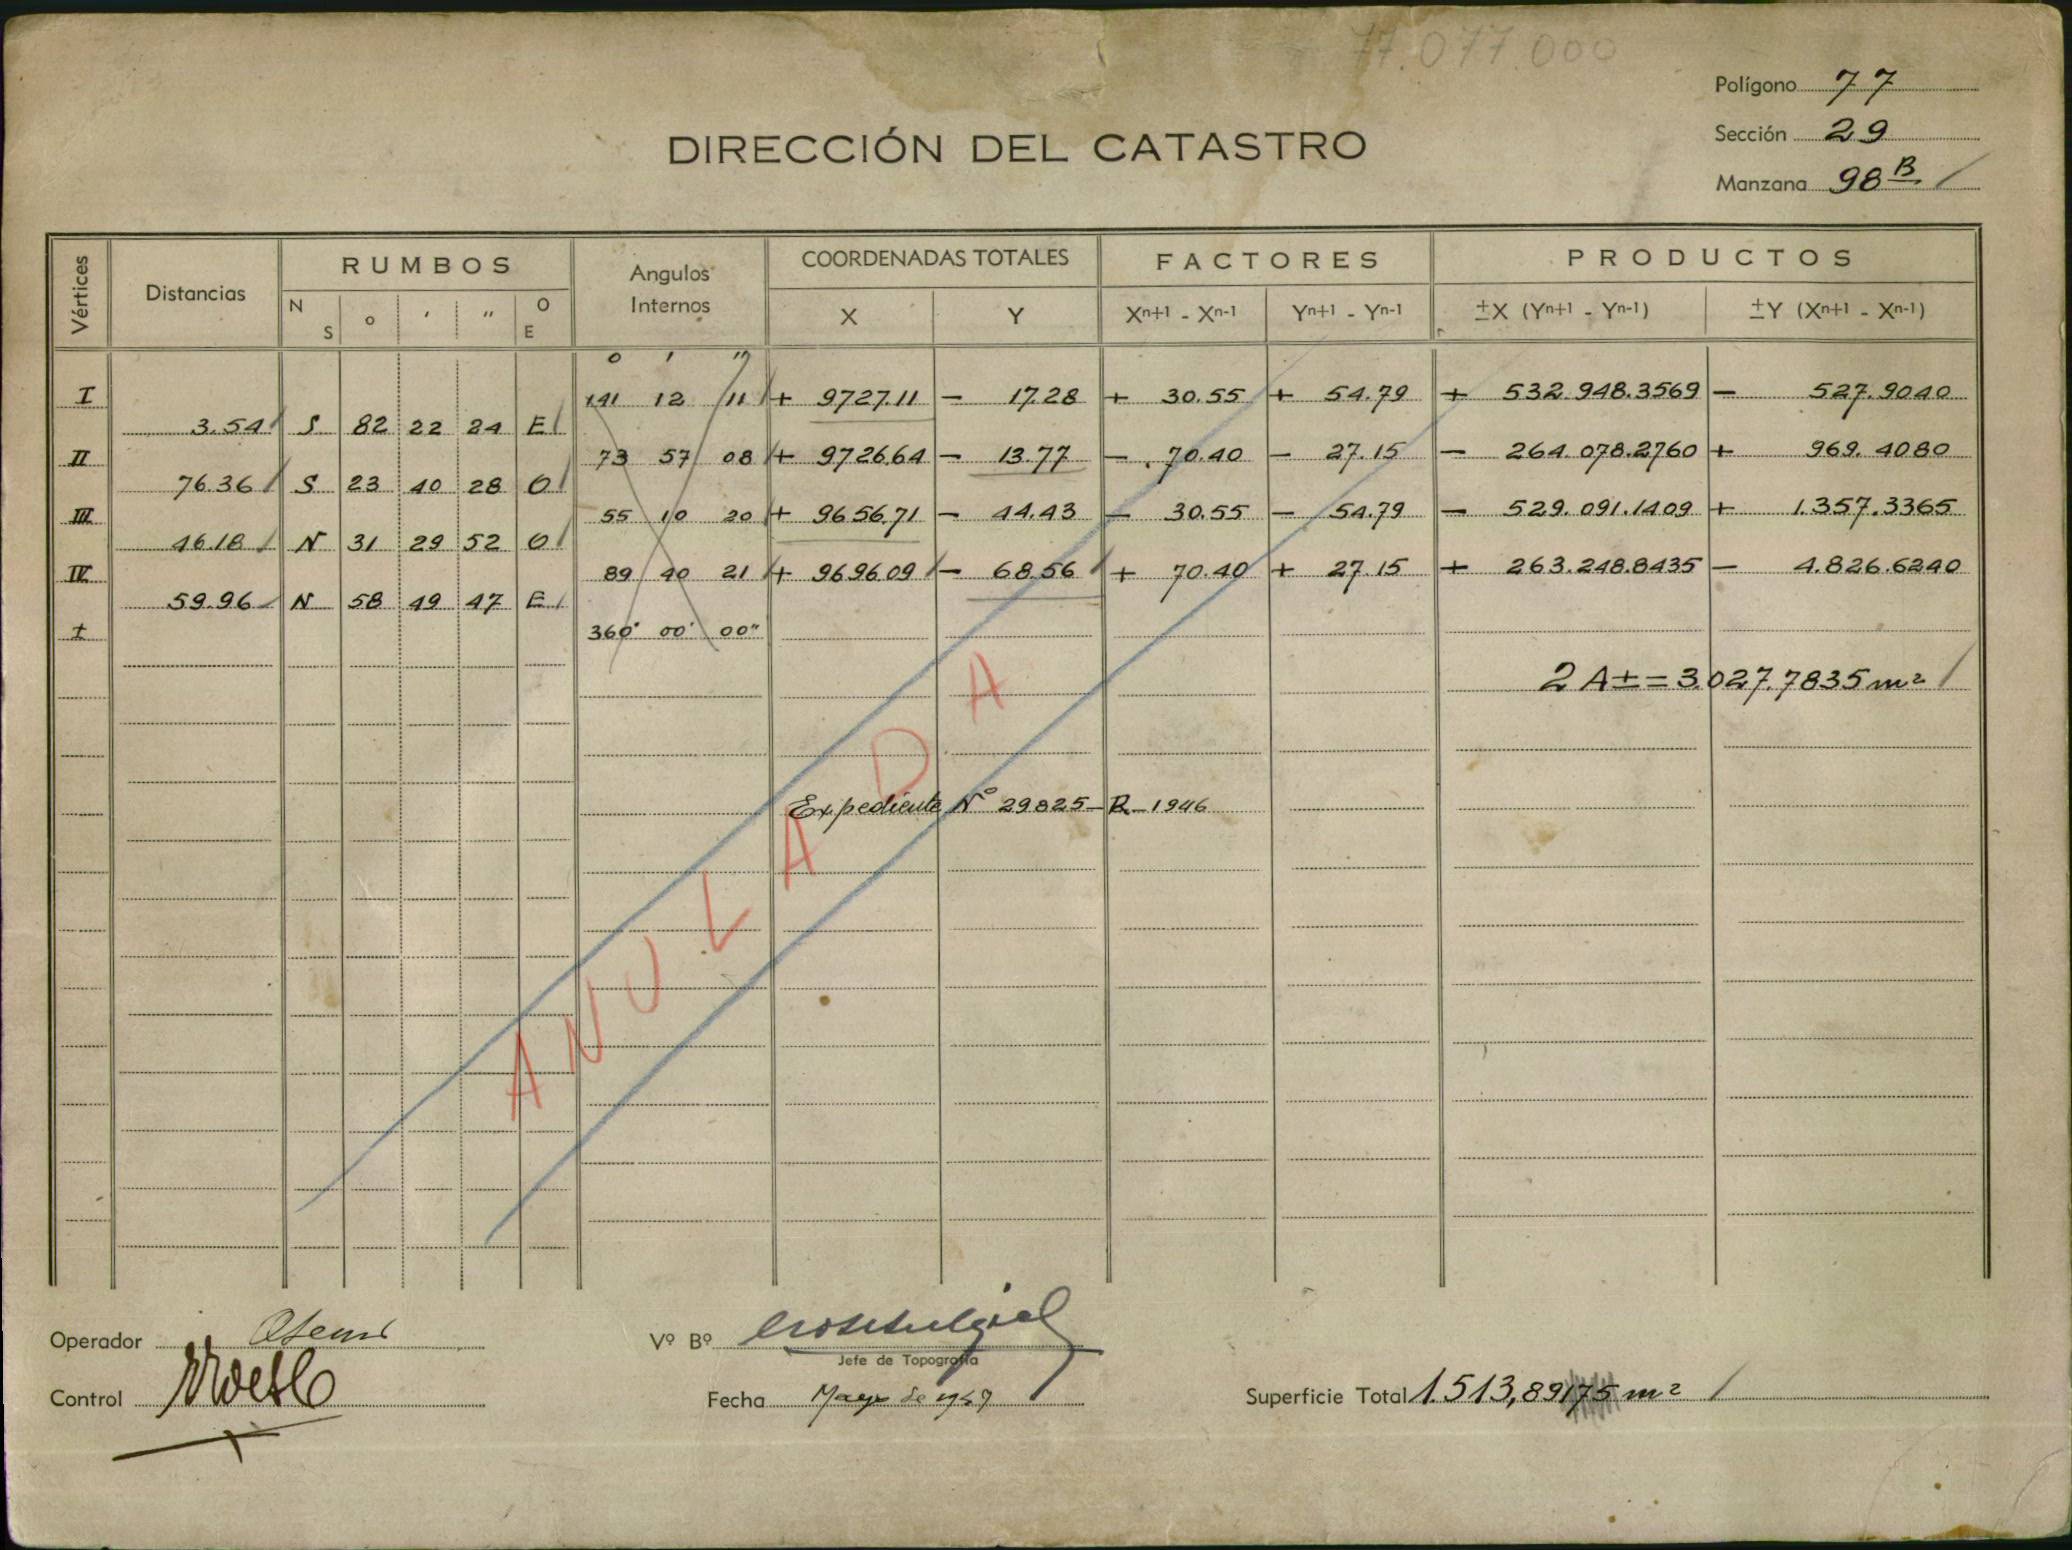 77.077.000
Polígono 77
Sección 29
Manzana 98 B
DIRECCIÓN DEL CATASTRO
Vértices Distancias RUMBOS Angulos Internos COORDENADAS TOTALES FACTORES PRODUCTOS
N S o ' " O E X Y Xn+1 - Xn-1 Yn+1 - Yn-1 ±X (Yn+1 - Yn-1) ±Y (Xn+1 - Xn-1)
o ' "
I 141 12 11 + 9727.11 - 17.28 + 30.55 + 54.79 + 532.948.3569 - 527.9040
3.54 S 82 22 24 E
II 73 57 08 + 9726.64 - 13.77 - 70.40 - 27.15 - 264.078.2760 + 969.4080
76.36 S 23 40 28 O
III 55 10 20 + 9656.71 - 44.43 - 30.55 - 54.79 - 529.091.1409 + 1.357.3365
46.18 N 31 29 52 O
IV 89 40 21 + 9696.09 - 68.56 + 70.40 + 27.15 + 263.248.8435 - 4.826.6240
59.96 N 58 49 47 E
I 360° 00' 00"
2 A± = 3.027.7835 m²
Expediente Nº 29825-R-1946
ANULADA
Operador
Vº Bº
Jefe de Topografía
Control
Fecha Mayo de 1949
Superficie Total 1.513,89175 m²